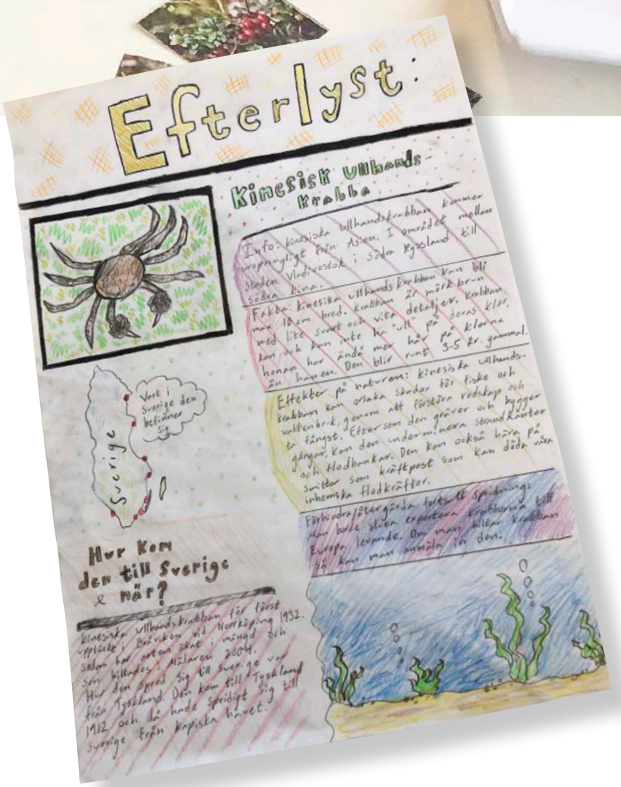 Efterlyst:
Kinesisk Ullhands-
Krabba
Info: kinesiska ullhandskrabban kommer
ursprungligt från Asien. I området mellan
staden Vladivostok i södra Ryssland till
södra Kina.
Fakta: kinesika ullhandskrabban kan bli
max 10 cm bred. krabban är mörkbrun
med lite svart och vita detaljer. krabban
kan och kan inte ha ull på deras klor,
honan har ändå mer hår på klorna
än hanen. Den blir runt 3-5 år gammal.
Effekter på naturen: kinesiska ullhands-
krabban kan orsaka skador för fiske och
vattenbruk, genom att förstöra redskap och
ta fångst. Eftersom den gräver och bygger
gångar, kan den underminera strandkanter
och flodbankar. Den kan också bära på
smittor som kräftpest som kan döda våra
inhemska flodkräftor.
Förhindra/åtgärda
Man borde sluta exportera krabborna till
Europa levande. Om man hittar krabban
så kan man anmäla in den.
Vart i
Sverige den
befinner
sig
Sverige
Hur kom
den till Sverige
& när?
kinesiska ullhandskrabban för först
upptäckt i Bråviken vid Norrköping 1932.
sedan har arten ökat i mängd och
sen hittades i Mälaren 2004.
Hur den spred sig till Sverige var
från Tyskland. Den kom till Tyskland
1912 och då hade spridigt sig till
Sverige från kapiska havet.